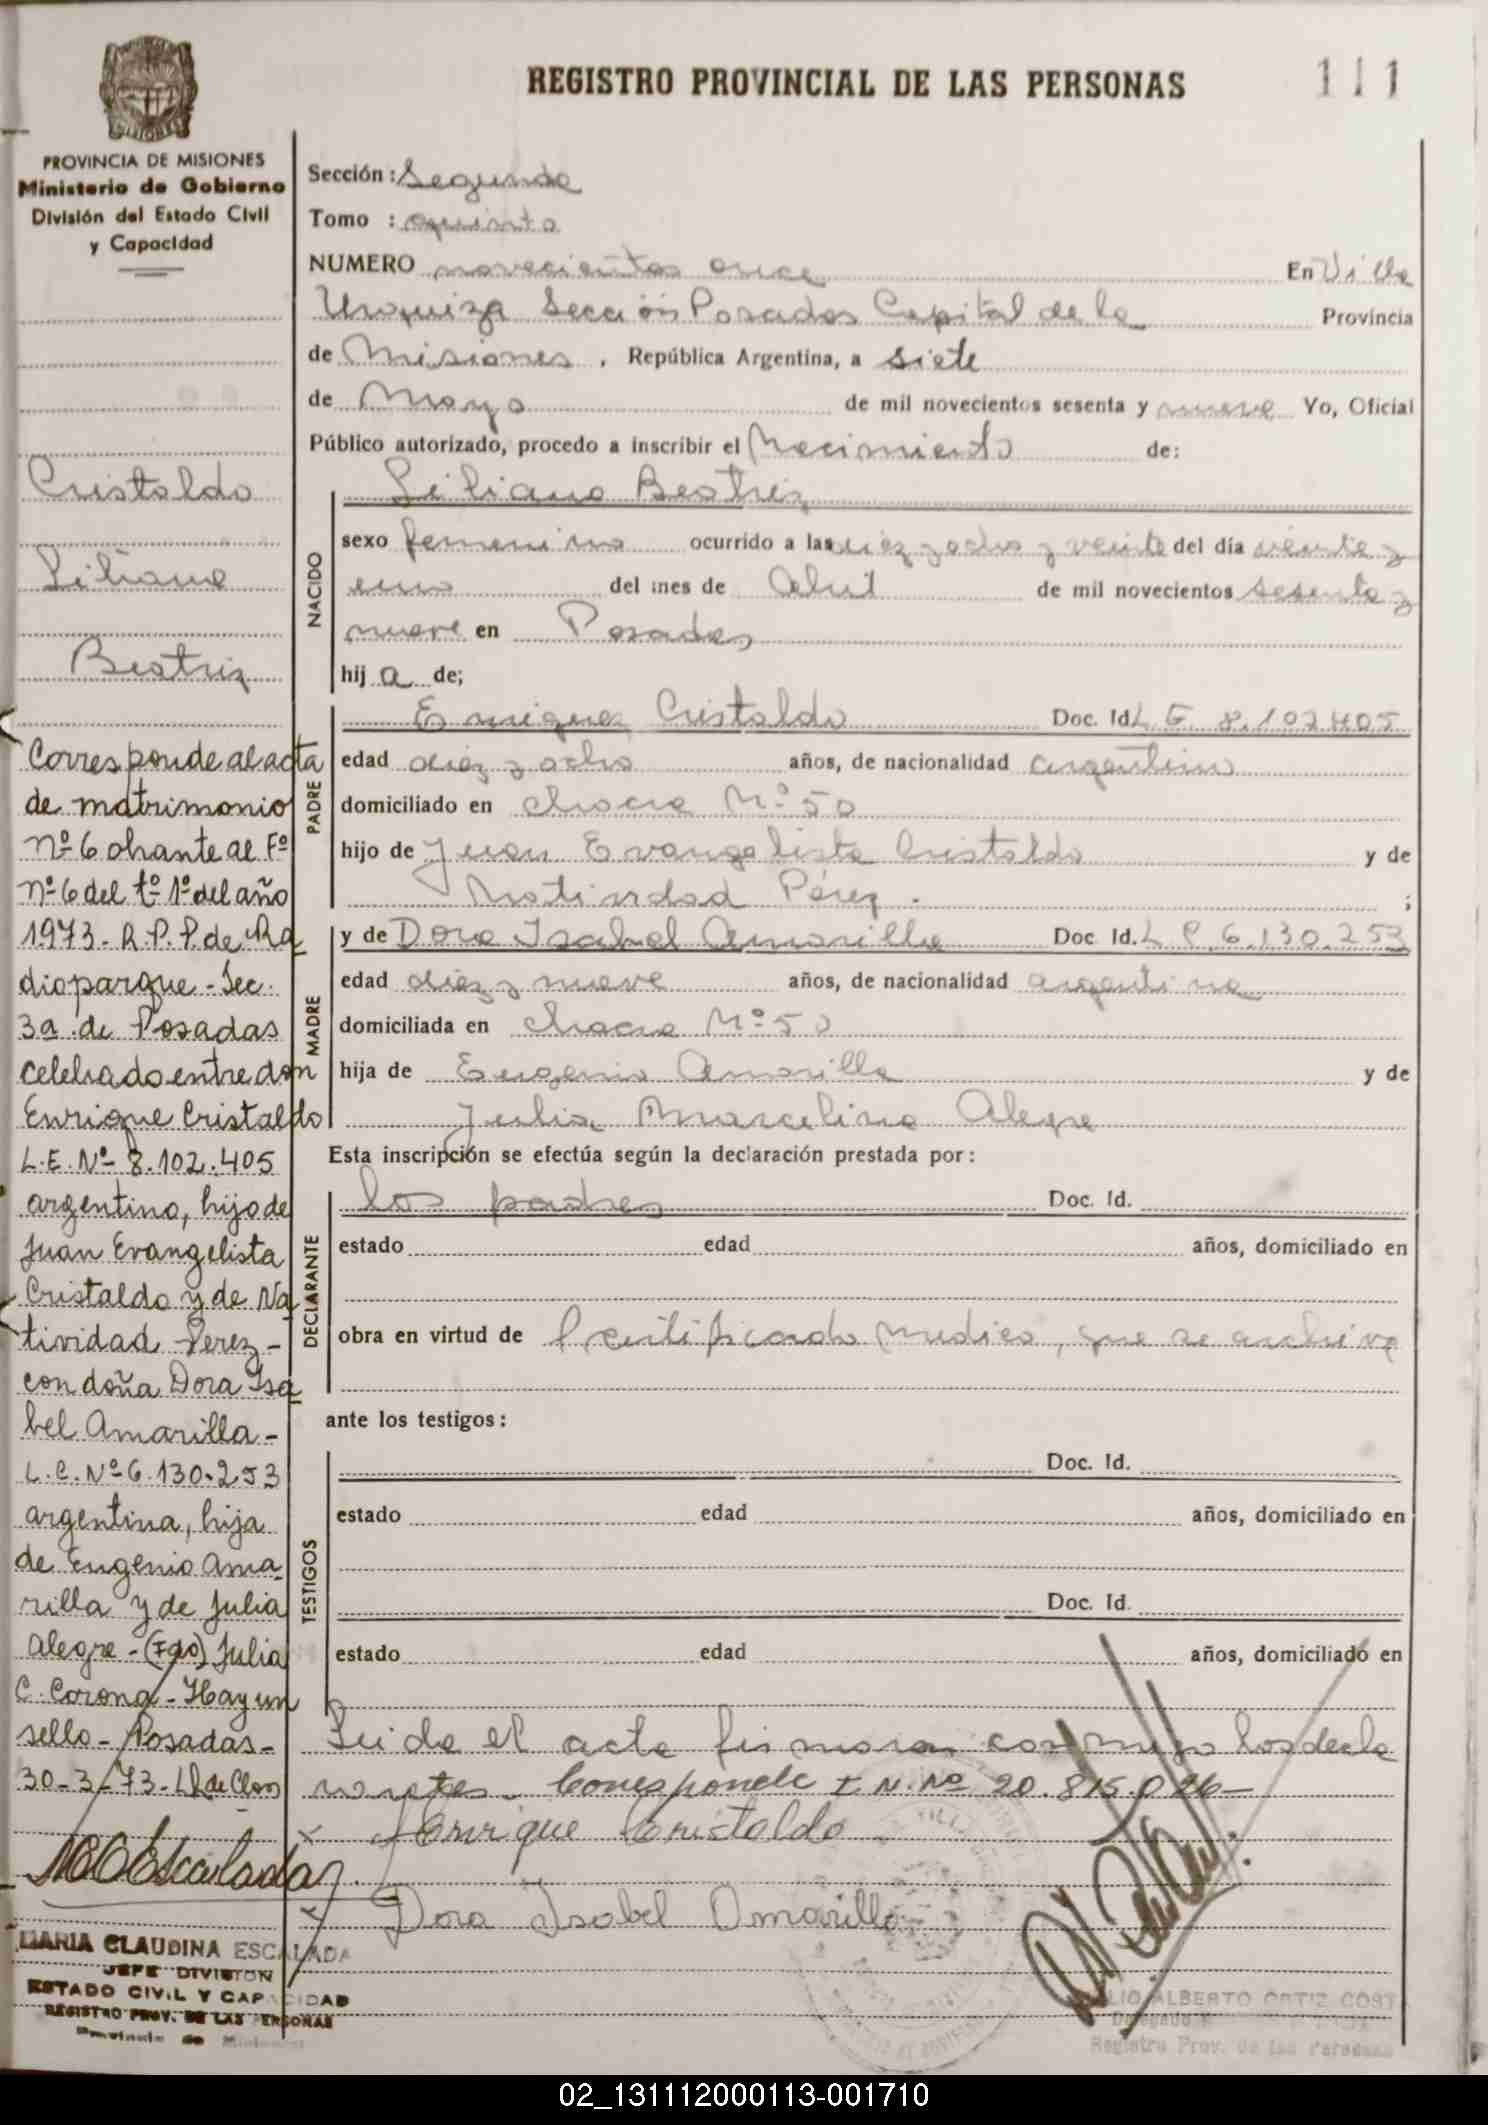 REGISTRO PROVINCIAL DE LAS PERSONAS
111
PROVINCIA DE MISIONES
Ministerio de Gobierno
División del Estado Civil
y Capacidad
Cristaldo
Liliana
Beatriz
Corresponde al acta
de matrimonio
Nº 6 obrante al Fº
Nº 6 del tº 1º del año
1973- R.P.P. de Ra
dioparque - Sec.
3a. de Posadas
celebrado entre don
Enrique Cristaldo
L.E. Nº 8.102.405
argentino, hijo de
Juan Evangelista
Cristaldo y de Na
tividad Perez -
con doña Dora Isa
bel Amarilla -
L.C. Nº 6.130.253
argentina, hija
de Eugenio Ama-
rilla y de Julia
Alegre - (Fdo) Julia
C. Corona - Hay un
sello - Posadas -
30-3-73-
MARIA CLAUDINA ESCALADA
JEFE DIVISION
ESTADO CIVIL Y CAPACIDAD
REGISTRO PROV. DE LAS PERSONAS
Provincia de Misiones
Sección : Segunda
Tomo : quinto
NUMERO novecientos once En Villa
Urquiza Sección Posadas Capital de la Provincia
de Misiones , República Argentina, a siete
de Mayo de mil novecientos sesenta y nueve Yo, Oficial
Público autorizado, procedo a inscribir el Nacimiento de:
NACIDO
Liliana Beatriz
sexo femenino ocurrido a las diez y ocho y veinte del día veinte y
uno del mes de Abril de mil novecientos sesenta y
nueve en Posadas
hij a de;
PADRE
Enrique Cristaldo Doc. Id. L E. 8.102.405
edad diez y ocho años, de nacionalidad argentino
domiciliado en chacra Nº 50
hijo de Juan Evangelista Cristaldo y de
Natividad Pérez . ;
MADRE
y de Dora Isabel Amarilla Doc. Id. L C. 6.130.253
edad diez y nueve años, de nacionalidad argentina
domiciliada en chacra Nº 50
hija de Eugenio Amarilla y de
Julia Marcelina Alegre
Esta inscripción se efectúa según la declaración prestada por :
DECLARANTE
los padres Doc. Id.
estado edad años, domiciliado en
obra en virtud de certificado medico, que se archiva
ante los testigos :
TESTIGOS
Doc. Id.
estado edad años, domiciliado en
Doc. Id.
estado edad años, domiciliado en
Leida el acta firmaron conmigo los decla
rantes. Corresponde I. N. Nº 20.815.026-
Enrique Cristaldo
Dora Isabel Amarilla
ALBERTO ORTIZ COST
Delegado
Registro Prov. de las Personas
02_131112000113-001710